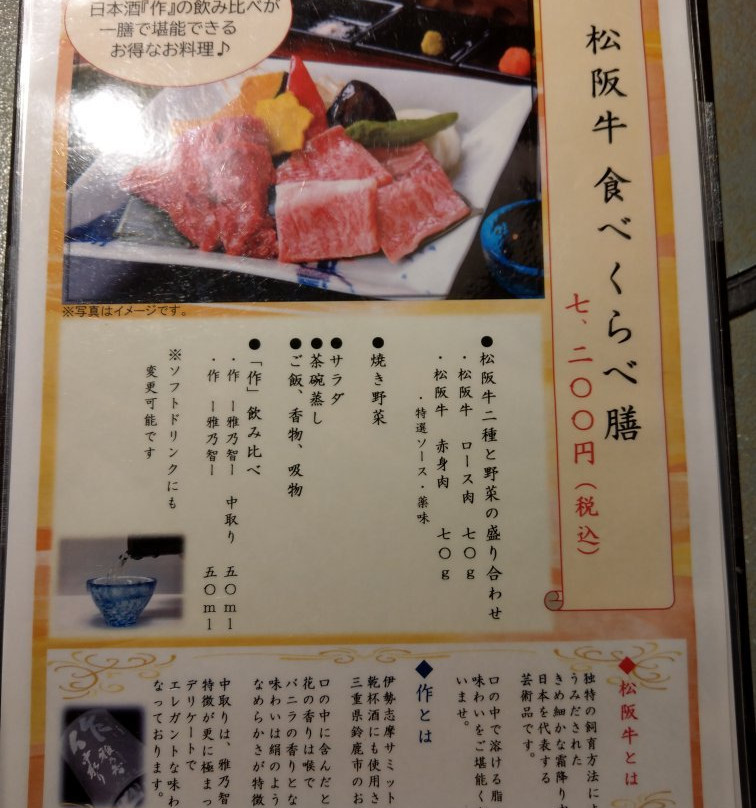 日本酒『作』の飲み比べが
一膳で堪能できる
お得なお料理♪
松阪牛 食べくらべ膳
七、二〇〇円（税込）
※写真はイメージです。
●松阪牛二種と野菜の盛り合わせ
・松阪牛 ロース肉 七〇g
・松阪牛 赤身肉 七〇g
・特選ソース・薬味
●焼き野菜
●サラダ
●茶碗蒸し
●ご飯、香物、吸物
●「作」飲み比べ
・作 ー雅乃智ー 中取り 五〇ml
・作 ー雅乃智ー 五〇ml
※ソフトドリンクにも
変更可能です
◆松阪牛とは
独特の飼育方法に
うみだされた
きめ細かな霜降り
日本を代表する
芸術品です。
口の中で溶ける脂
味わいをご堪能く
いませ。
◆作とは
伊勢志摩サミット
乾杯酒にも使用さ
三重県鈴鹿市のお
口の中に含んだと
花の香りは喉で
バニラの香りとな
味わいは絹のよう
なめらかさが特徴
中取りは、雅乃智
特徴が更に極まっ
デリケートで
エレガントな味わ
なっております。
作